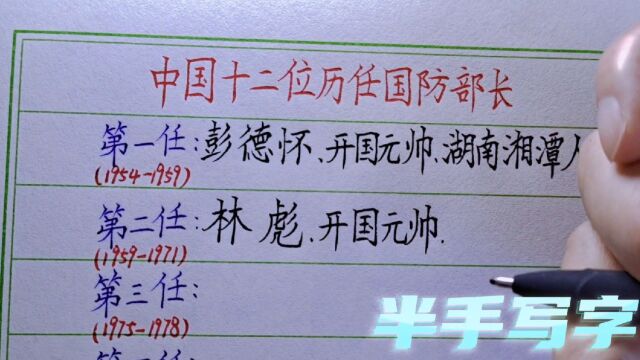 中国十二位历任国防部长
第一任:彭德怀、开国元帅、湖南湘潭人
(1954-1959)
第二任:林彪、开国元帅.
(1959-1971)
第三任:
(1975-1978)
半手写字